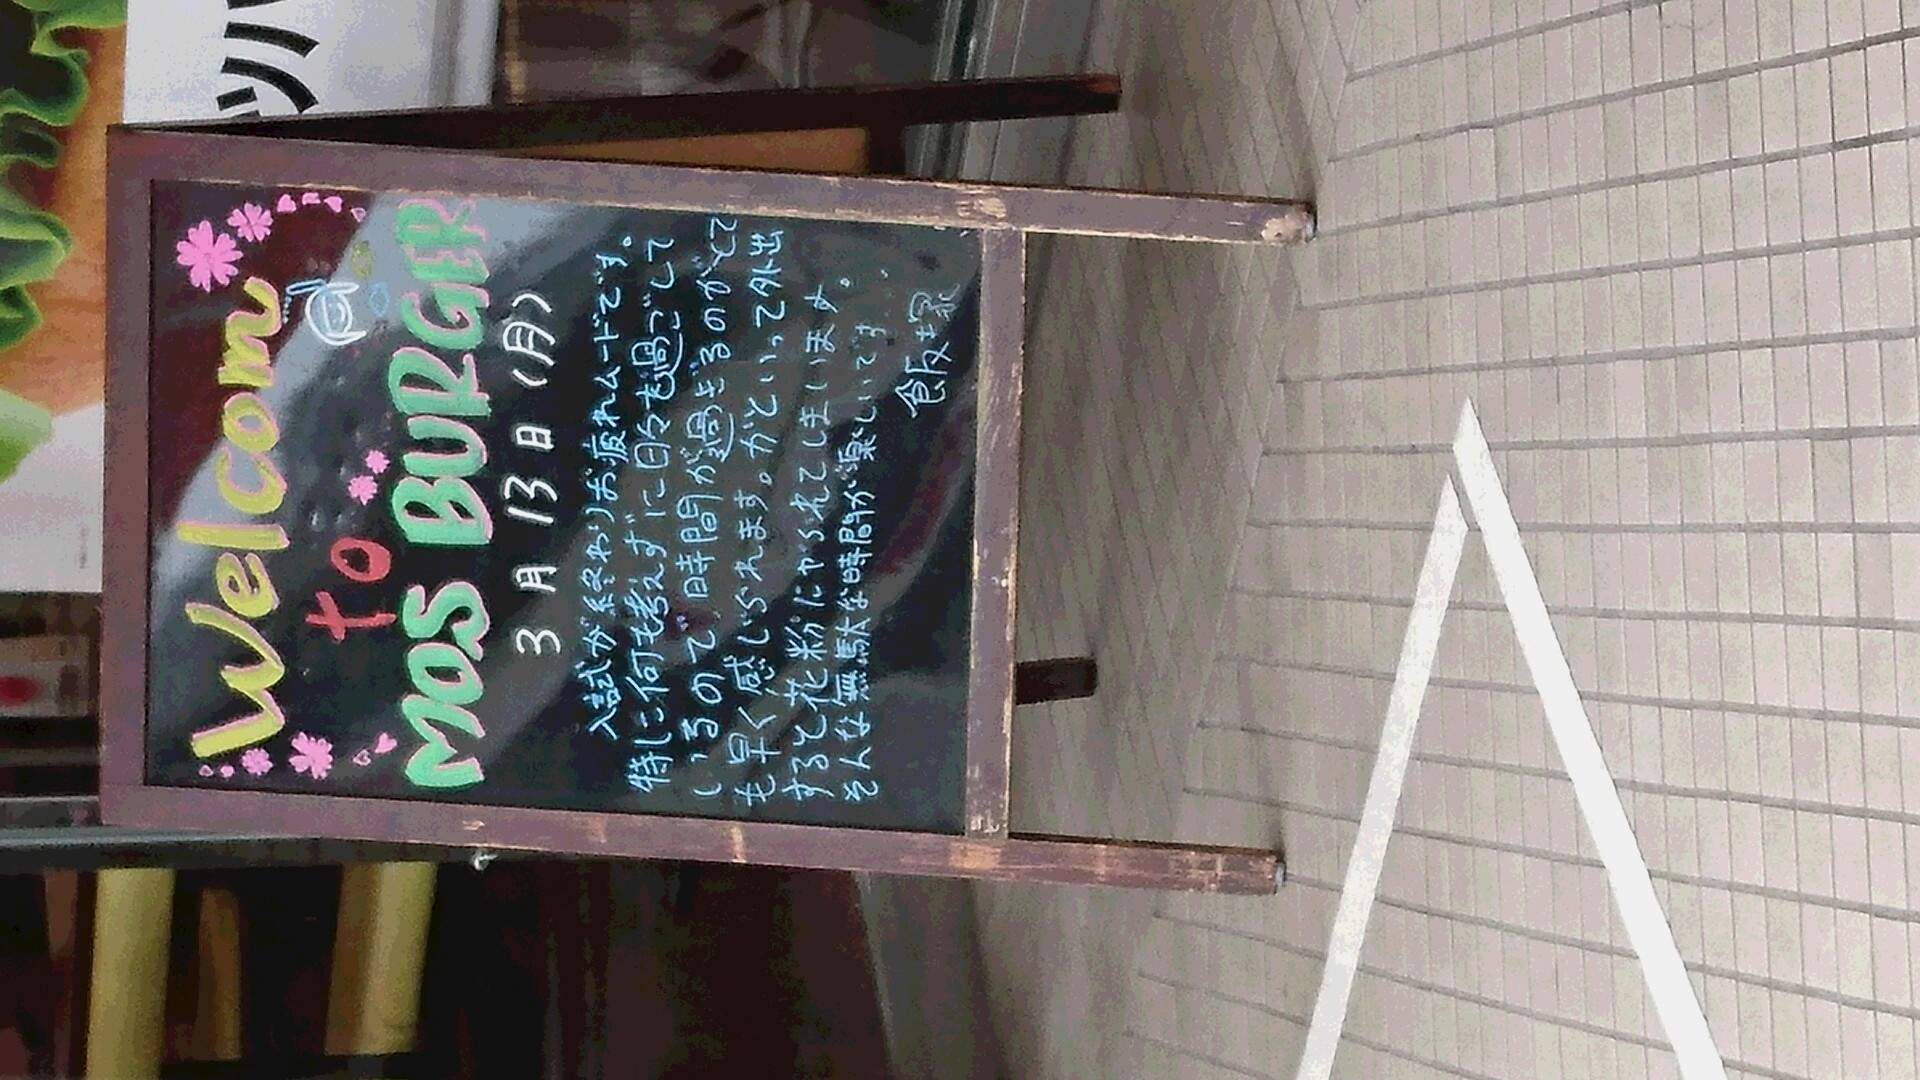 Welcom
to
MOS BURGER
3月13日(月)
入試が終わりお疲れムードです。
特に何も考えずに日々を過ごして
いるので時間が過ぎるのがとて
も早く感じられます。がといって外出
すると花粉にやられてしまいます。
そんな無駄な時間が楽しいです
飯塚
ツバ